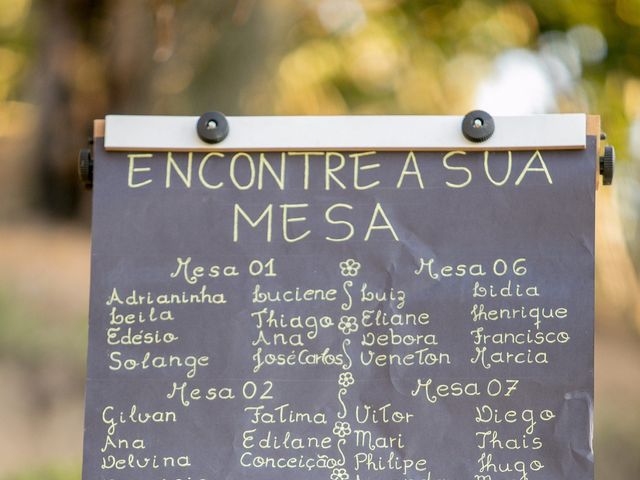 ENCONTRE A SUA
MESA
Mesa 01
Adrianinha Luciene
Leila Thiago
Edésio Ana
Solange José Carlos
Mesa 02
Gilvan Fatima
Ana Edilane
Delvina Conceição
Mesa 06
Luiz Lidia
Eliane Henrique
Debora Francisco
Veneton Marcia
Mesa 07
Vitor Diego
Mari Thais
Philipe Hugo